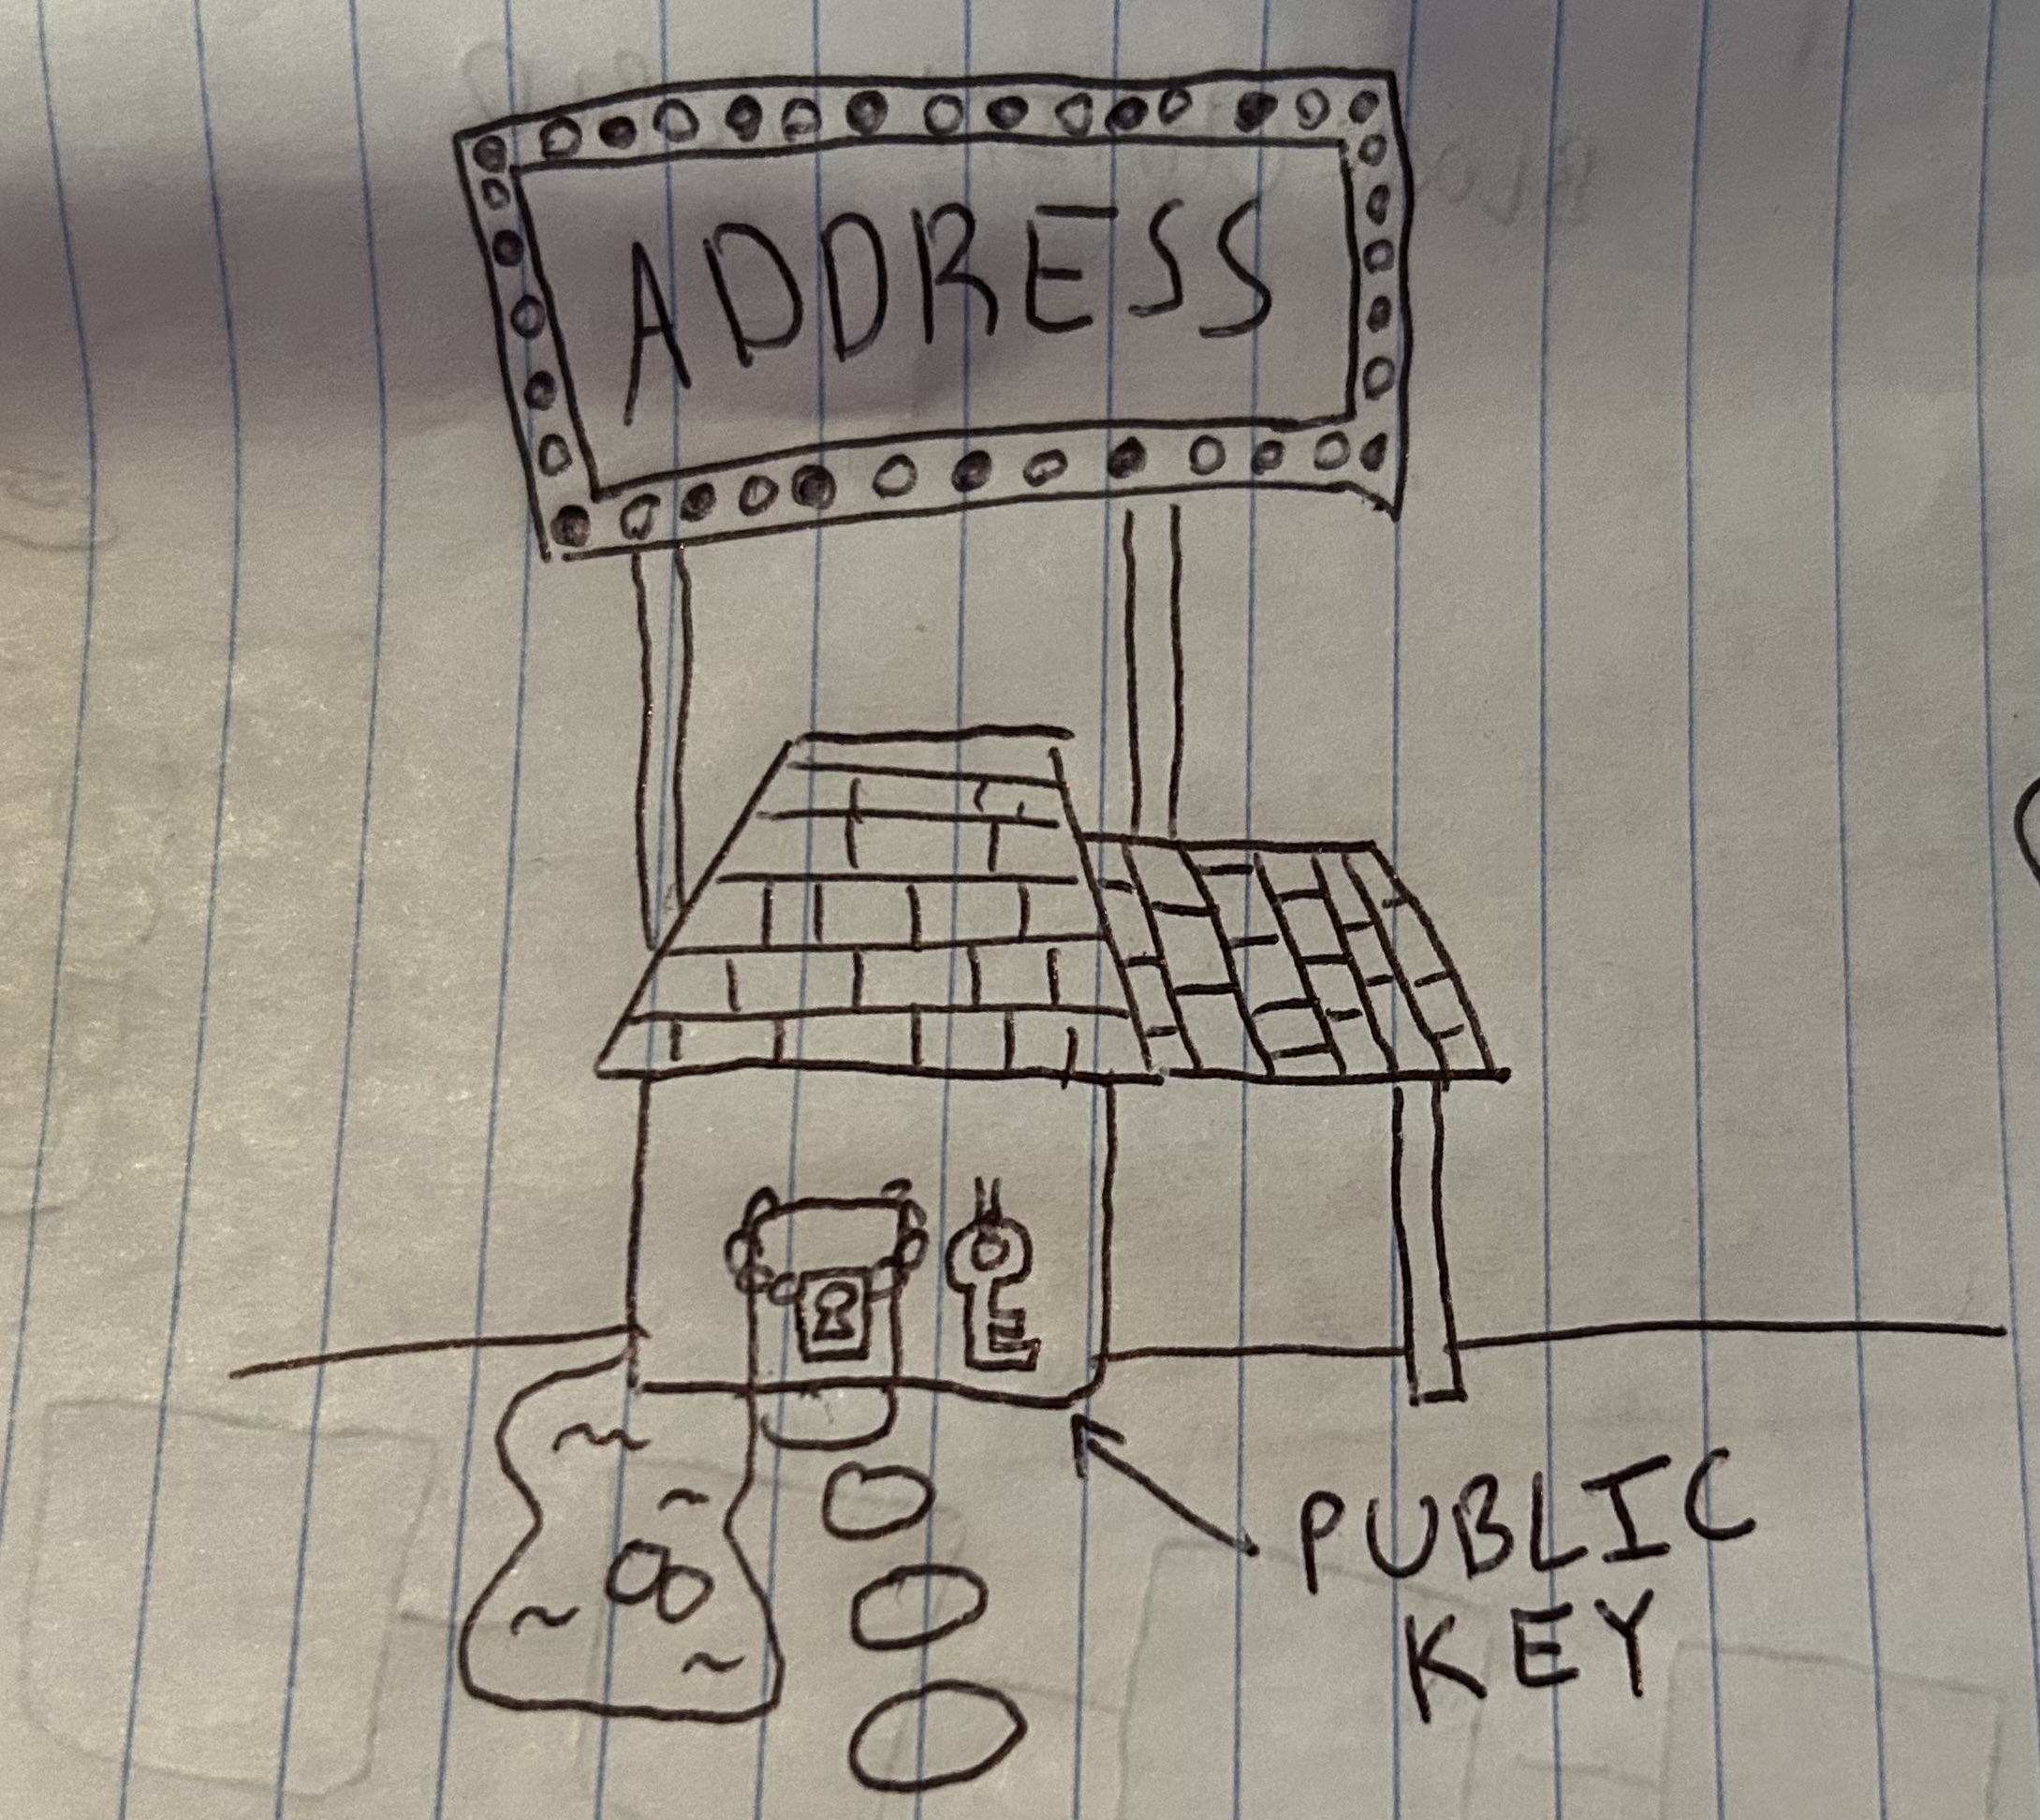 ADDRESS
PUBLIC
KEY